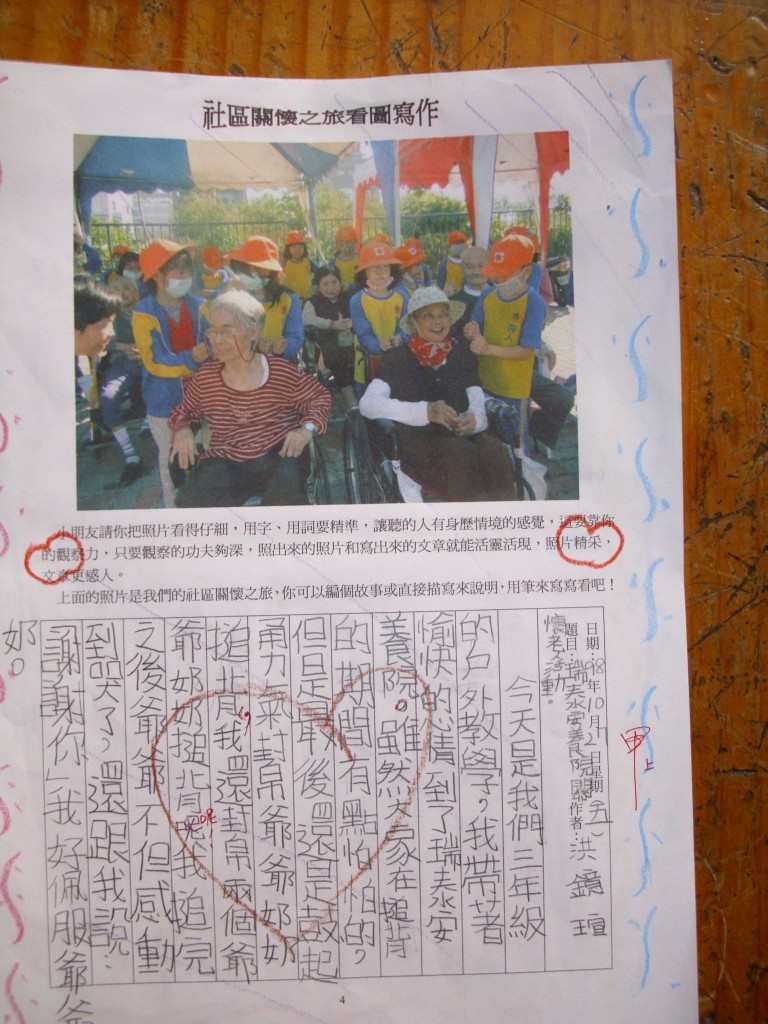 社區關懷之旅看圖寫作
小朋友請你把照片看得仔細，用字、用詞要精準，讓聽的人有身歷情境的感覺，這要靠你
的觀察力，只要觀察的功夫夠深，照出來的照片和寫出來的文章就能活靈活現，照片精采，
文章更感人。
上面的照片是我們的社區關懷之旅，你可以編個故事或直接描寫來說明，用筆來寫寫看吧！
日期：98年10月2日星期五
題目：瑞泰安養院關
懷老活動。
作者：洪鏡瑄
甲上
今天是我們三年級
的戶外教學，我帶著
愉快的心情到了瑞泰安
養院。雖然大家在搥背
的期間有點怕怕的，
但是最後還是鼓起
勇氣幫爺爺奶奶
搥背，我還幫兩個爺
爺奶奶搥背呢！我搥完
之後爺爺不但感動
到哭了，還跟我說：
「謝謝你」我好佩服爺爺
奶。
4